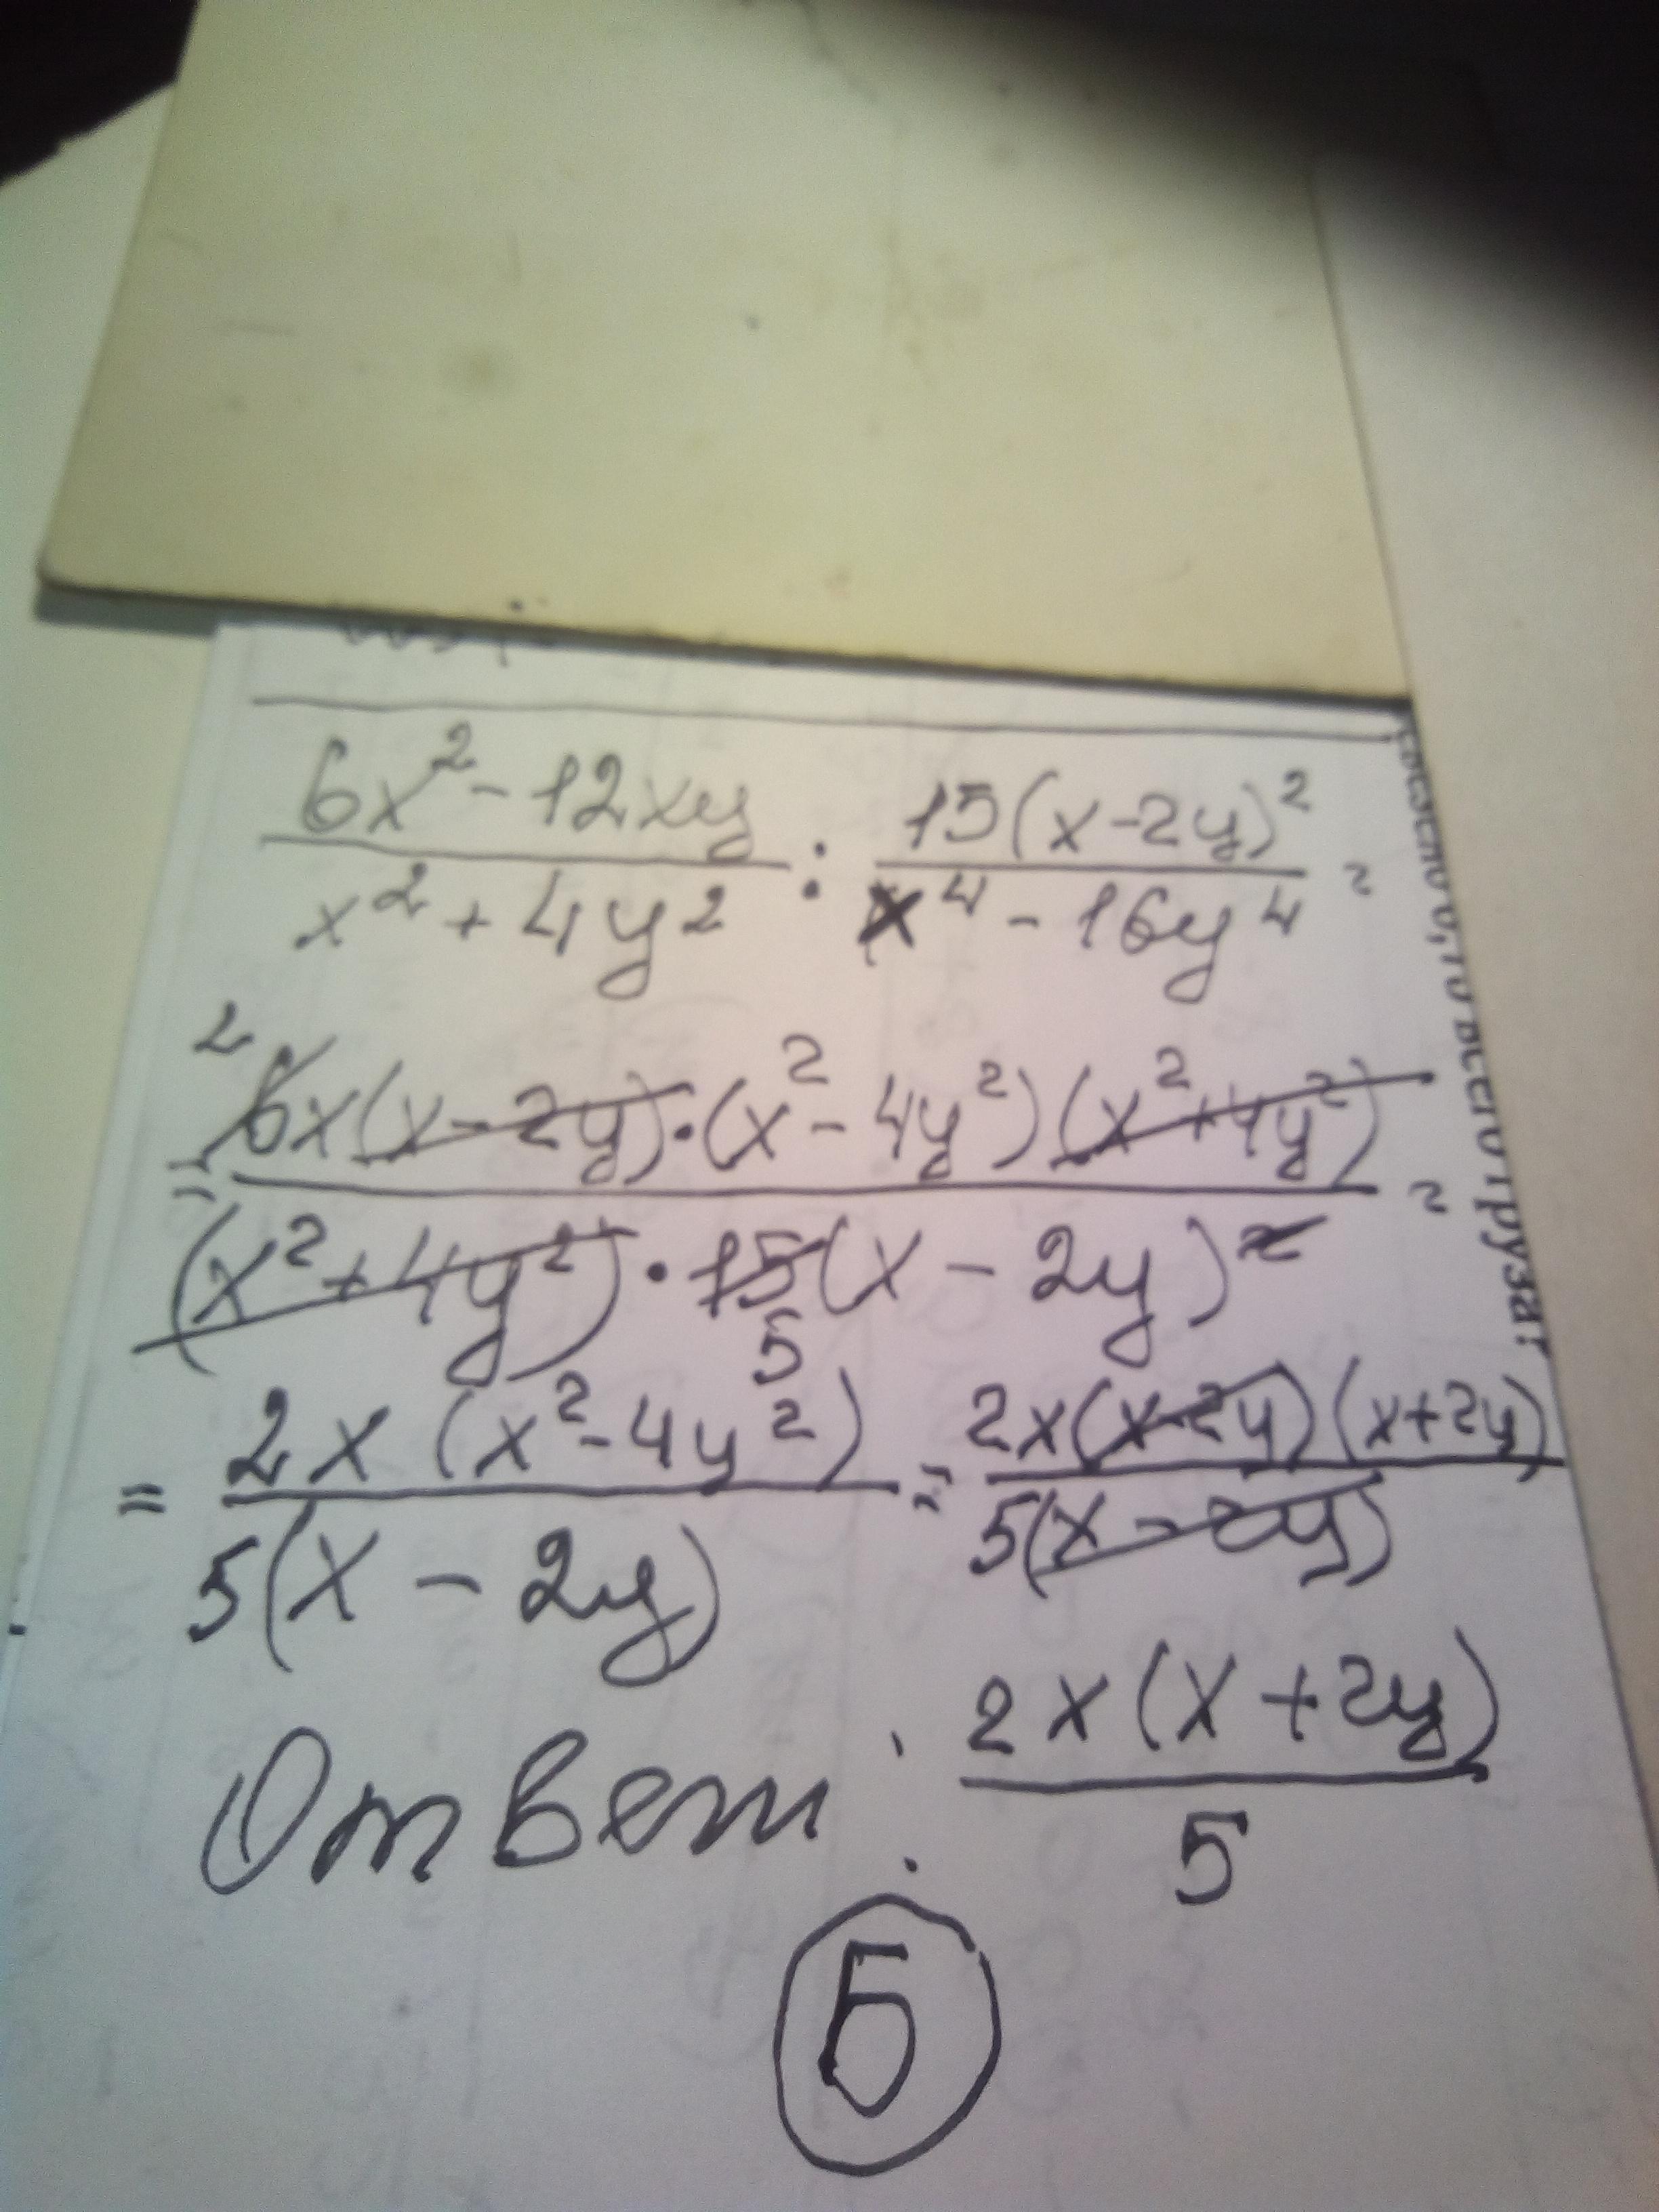 6x² - 12xy / x² + 4y² : 15(x-2y)² / x⁴ - 16y⁴ =
= 2 6x(x-2y)·(x²-4y²)(x²+4y²) / (x²+4y²)·15(x-2y)² 5 =
= 2x(x²-4y²) / 5(x-2y) = 2x(x-2y)(x+2y) / 5(x-2y)
Ответ: 2x(x+2y) / 5
Б
всего груза!